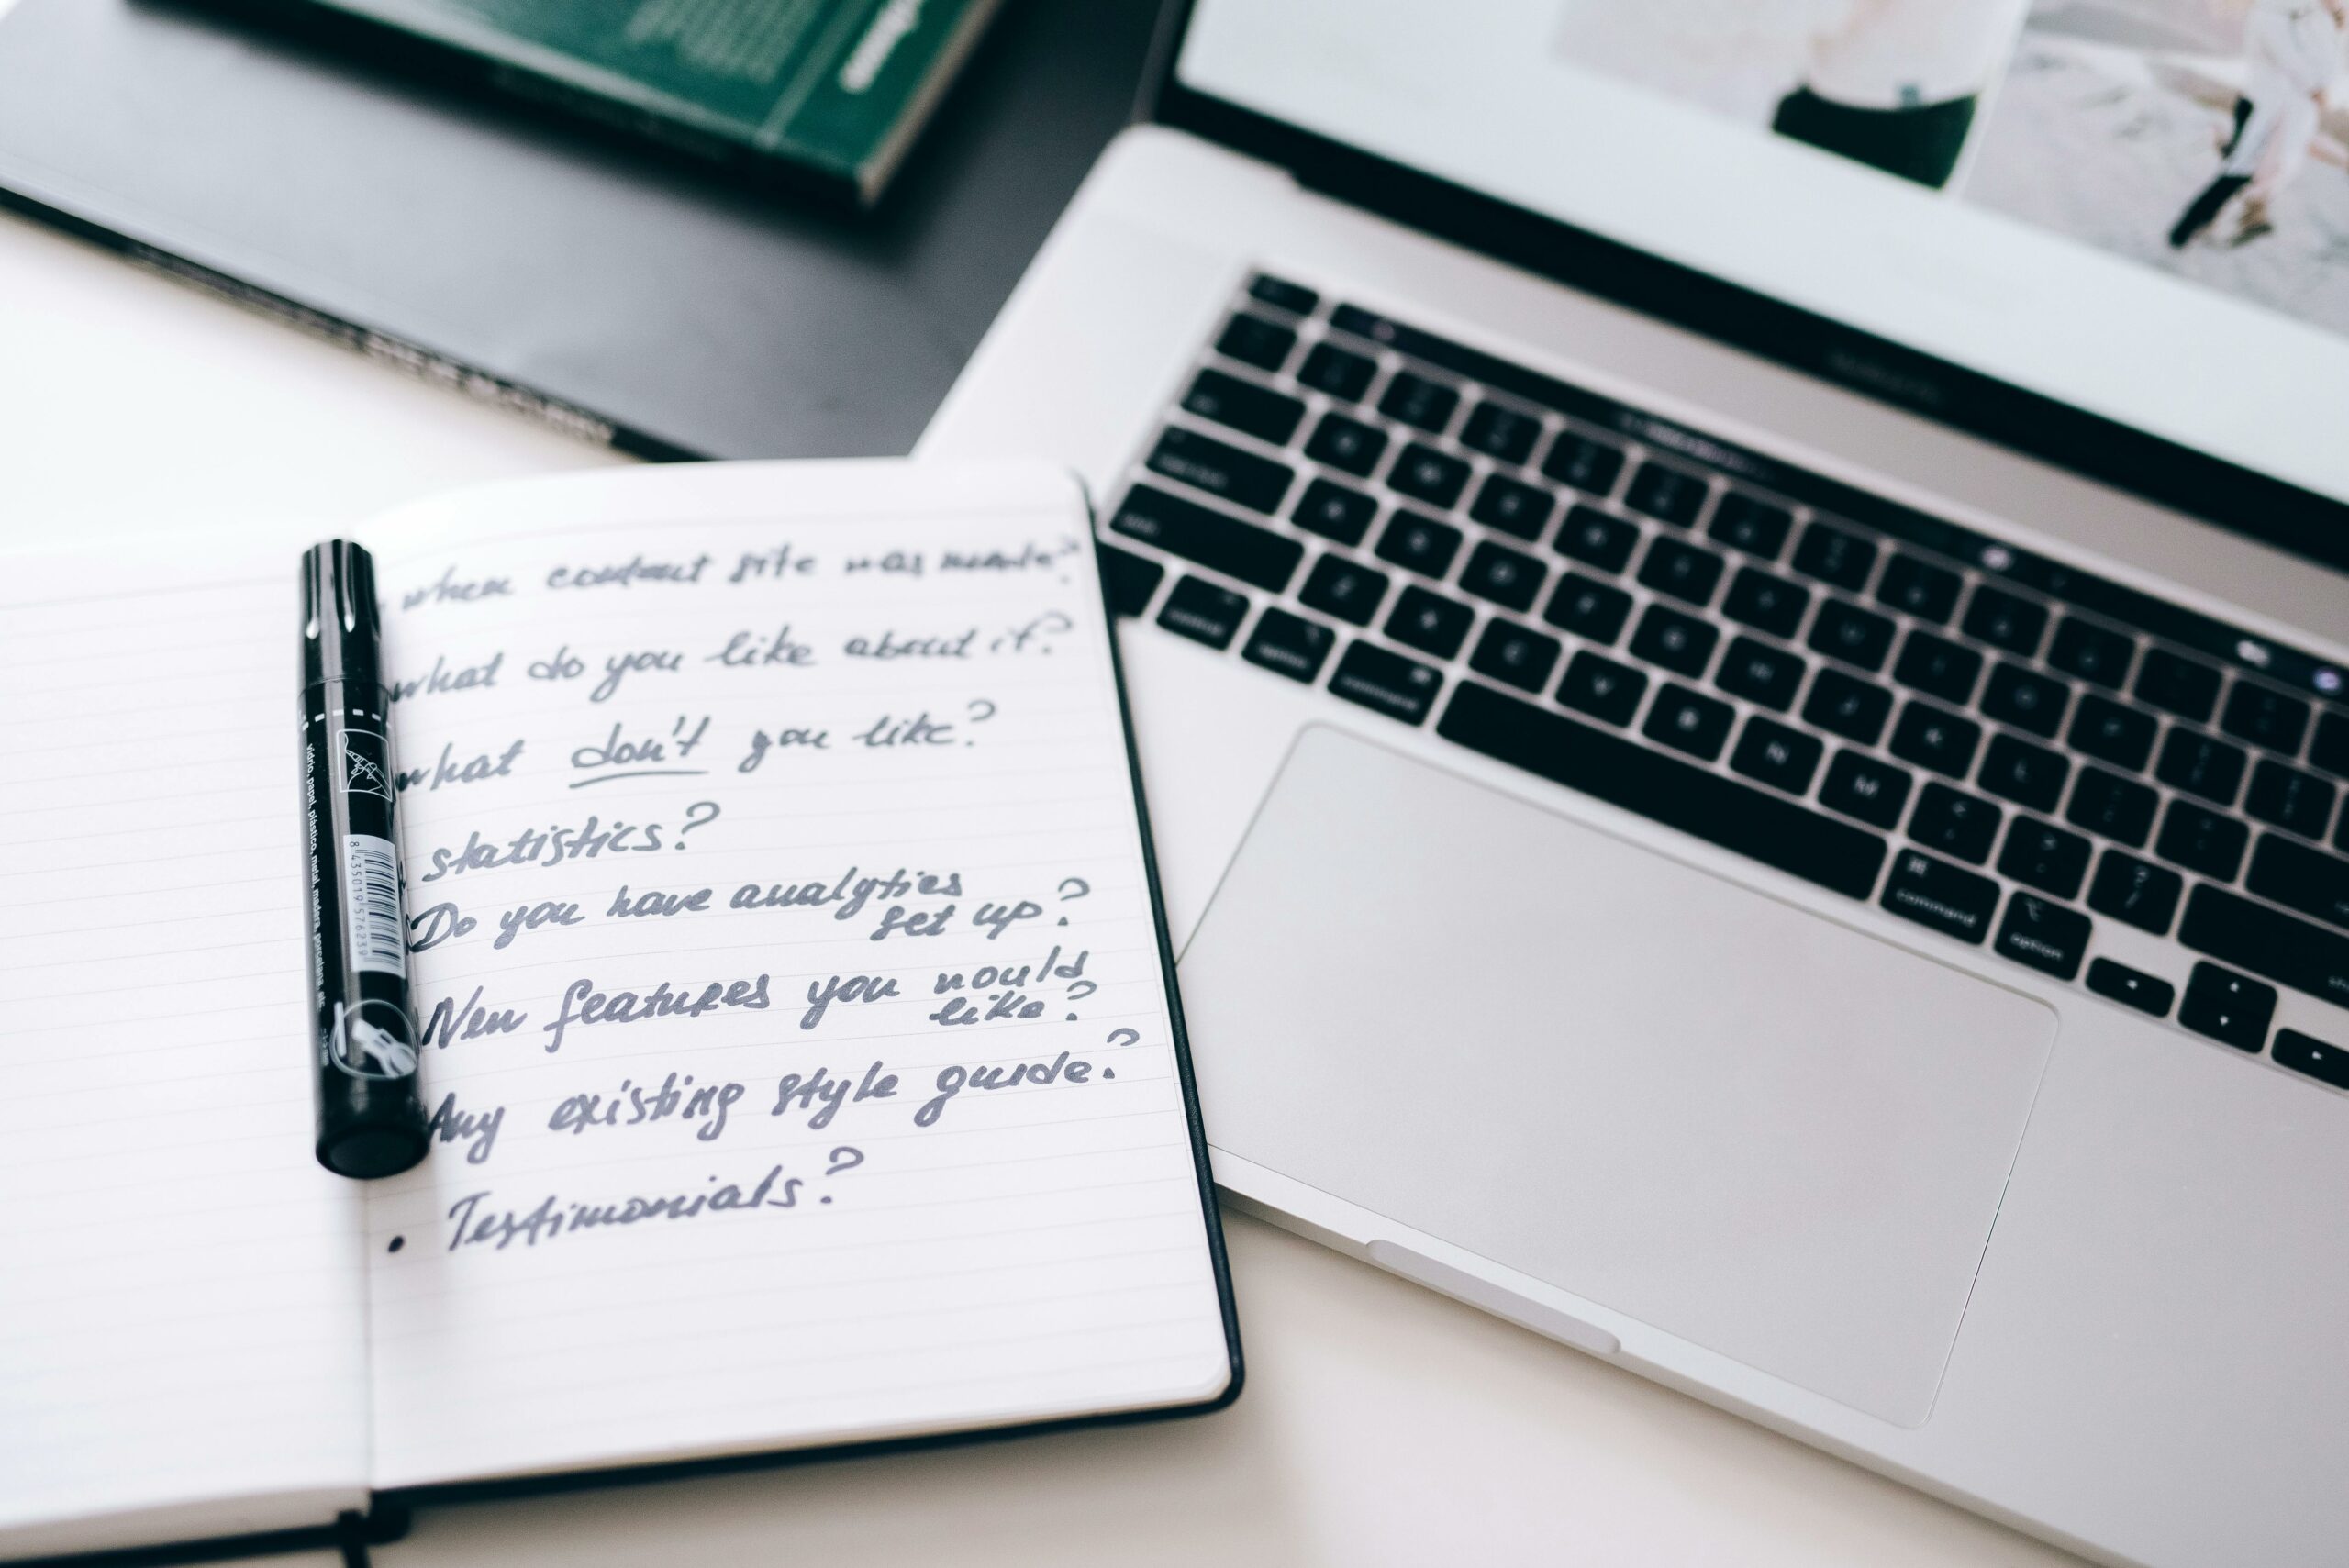 when content site was made?
what do you like about it?
what don't you like?
statistics?
Do you have analytics
set up?
New features you would
like?
Any existing style guide?
• Testimonials?
vidrio, papel, plástico, metal, madera, porcelana, etc
8 435019 576239
command
option
command